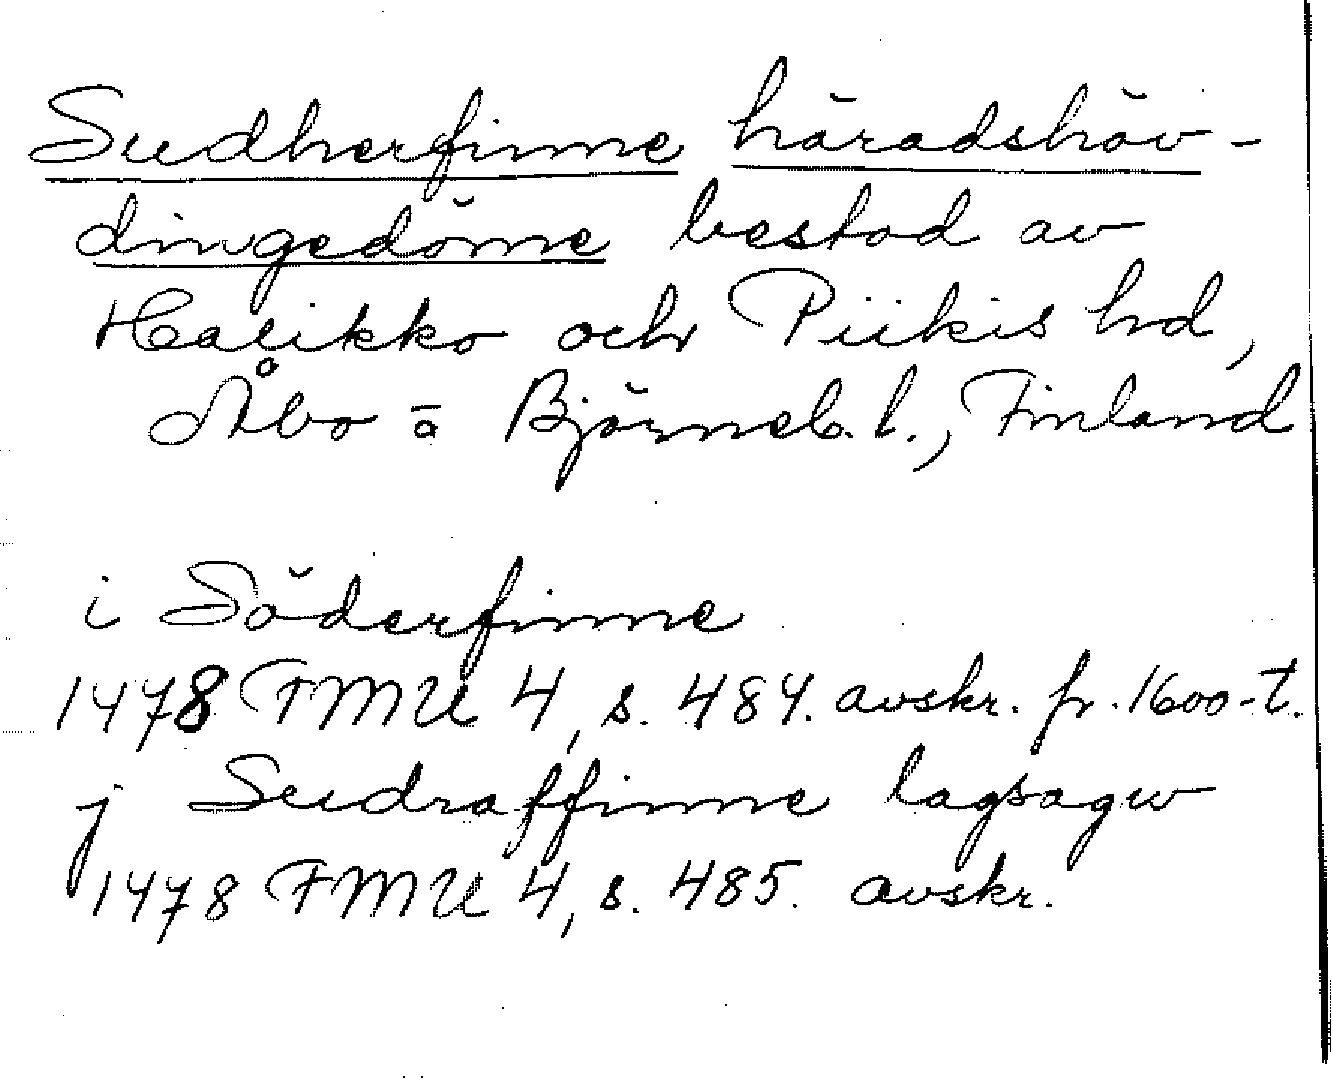 Sudherfinne häradshöv-
dingedöme bestod av
Halikko och Piikis hd,
Åbo o Björneb. l., Finland
i Söderfinne
1478 FMU 4, s. 484. avskr. fr. 1600-t.
j Sudraffinne lagsagw
1478 FMU 4, s. 485. avskr.